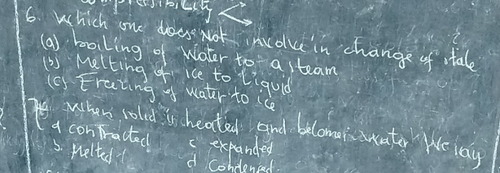 6. Which one does Not involve in change of state
(a) boiling of water to a steam
(b) Melting of ice to liquid
(c) Freezing of water to ice
7. When solid is heated and becomes water we say
a contracted c expanded
b. Melted d Condensed